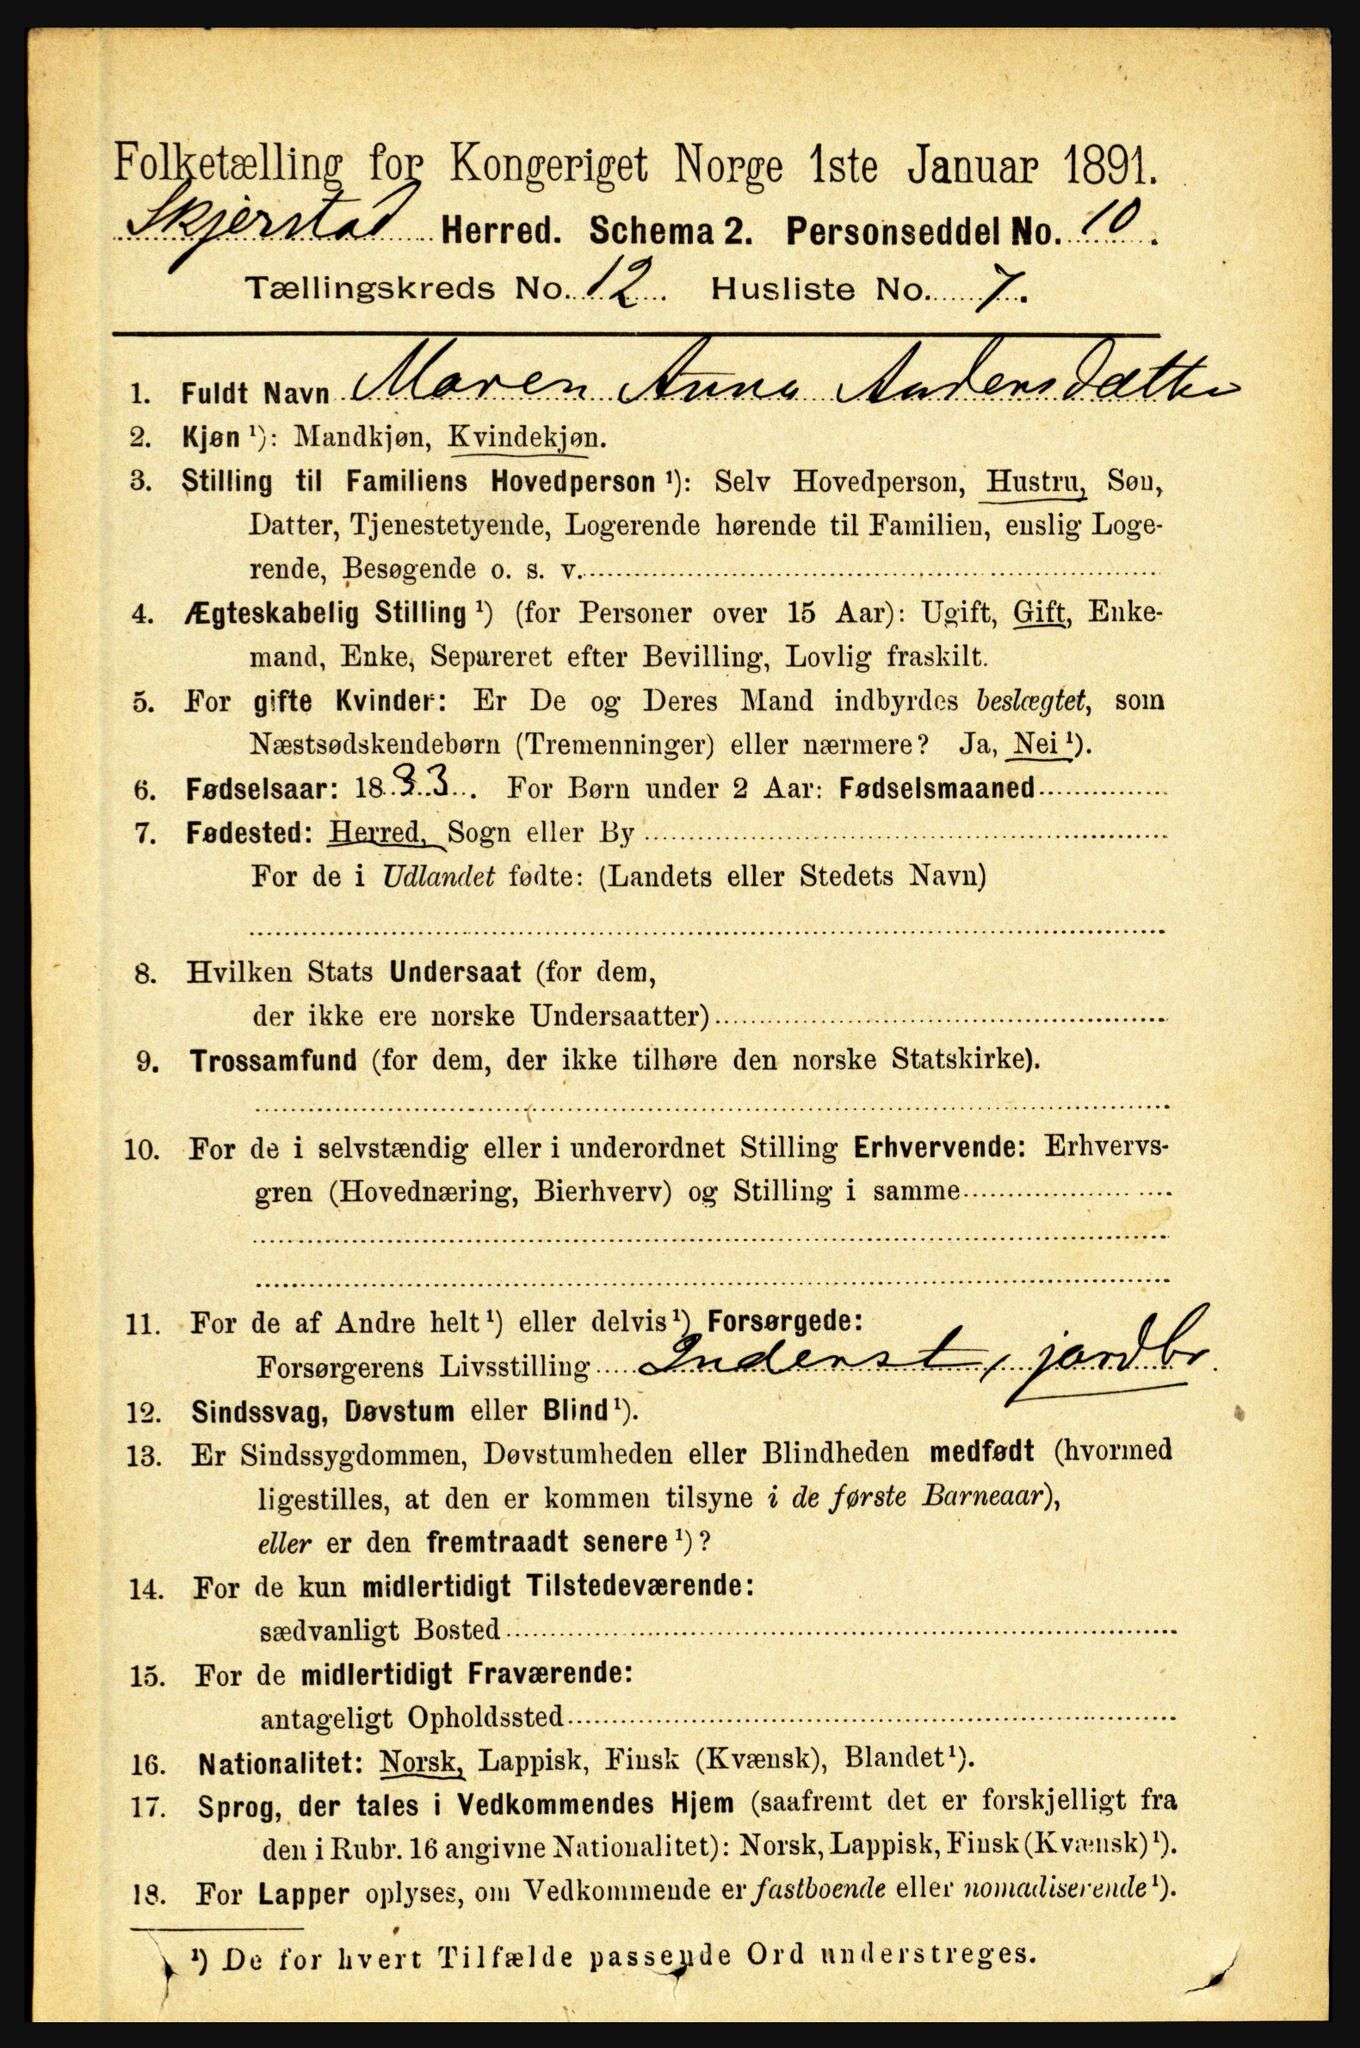 Folketælling for Kongeriget Norge 1ste Januar 1891.
Skjerstad Herred. Schema 2. Personseddel No. 10.
Tællingskreds No. 12. Husliste No. 7.
1. Fuldt Navn Maren Anna Andersdatter
2. Kjøn ¹): Mandkjøn, Kvindekjøn.
3. Stilling til Familiens Hovedperson ¹): Selv Hovedperson, Hustru, Søn,
Datter, Tjenestetyende, Logerende hørende til Familien, enslig Loge-
rende, Besøgende o. s. v.
4. Ægteskabelig Stilling ¹) (for Personer over 15 Aar): Ugift, Gift, Enke-
mand, Enke, Separeret efter Bevilling, Lovlig fraskilt.
5. For gifte Kvinder: Er De og Deres Mand indbyrdes beslægtet, som
Næstsødskendebørn (Tremenninger) eller nærmere? Ja, Nei ¹).
6. Fødselsaar: 1833. For Børn under 2 Aar: Fødselsmaaned
7. Fødested: Herred, Sogn eller By
For de i Udlandet fødte: (Landets eller Stedets Navn)
8. Hvilken Stats Undersaat (for dem,
der ikke ere norske Undersaatter)
9. Trossamfund (for dem, der ikke tilhøre den norske Statskirke).
10. For de i selvstændig eller i underordnet Stilling Erhvervende: Erhvervs-
gren (Hovednæring, Bierhverv) og Stilling i samme
11. For de af Andre helt ¹) eller delvis ¹) Forsørgede:
Forsørgerens Livsstilling Inderst, jordbr.
12. Sindssvag, Døvstum eller Blind ¹).
13. Er Sindssygdommen, Døvstumheden eller Blindheden medfødt (hvormed
ligestilles, at den er kommen tilsyne i de første Barneaar),
eller er den fremtraadt senere ¹)?
14. For de kun midlertidigt Tilstedeværende:
sædvanligt Bosted
15. For de midlertidigt Fraværende:
antageligt Opholdssted
16. Nationalitet: Norsk, Lappisk, Finsk (Kvænsk), Blandet ¹).
17. Sprog, der tales i Vedkommendes Hjem (saafremt det er forskjelligt fra
den i Rubr. 16 angivne Nationalitet): Norsk, Lappisk, Finsk (Kvænsk) ¹).
18. For Lapper oplyses, om Vedkommende er fastboende eller nomadiserende ¹).
¹) De for hvert Tilfælde passende Ord understreges.